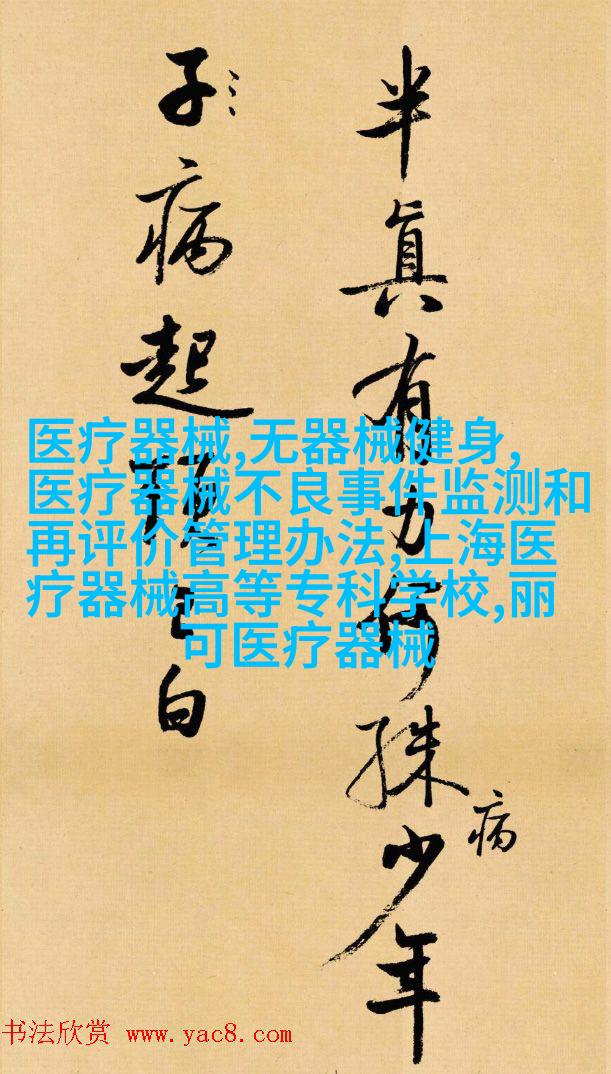 半眞有力何殊病少年
子病起頭已白
医疗器械,无器械健身,
医疗器械不良事件监测和
再评价管理办法,上海医
疗器械高等专科学校,丽
可医疗器械
书法欣赏 www.yac8.com